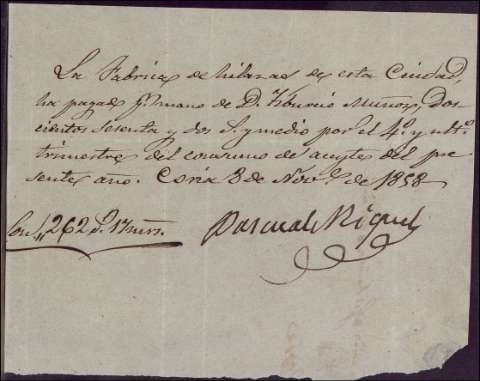 La Fabrica de hilazas de esta Ciudad,
ha pagado p.r mano de D. Tiburcio Muñoz, Dos
cientos sesenta y dos r.s y medio por el 4.º y ult.º
trimestre del consumo de aceyte del pre-
sente año. Coria 3 de Nov.e de 1858
Son 262 r.s 17 mrs. Pascual Miguel